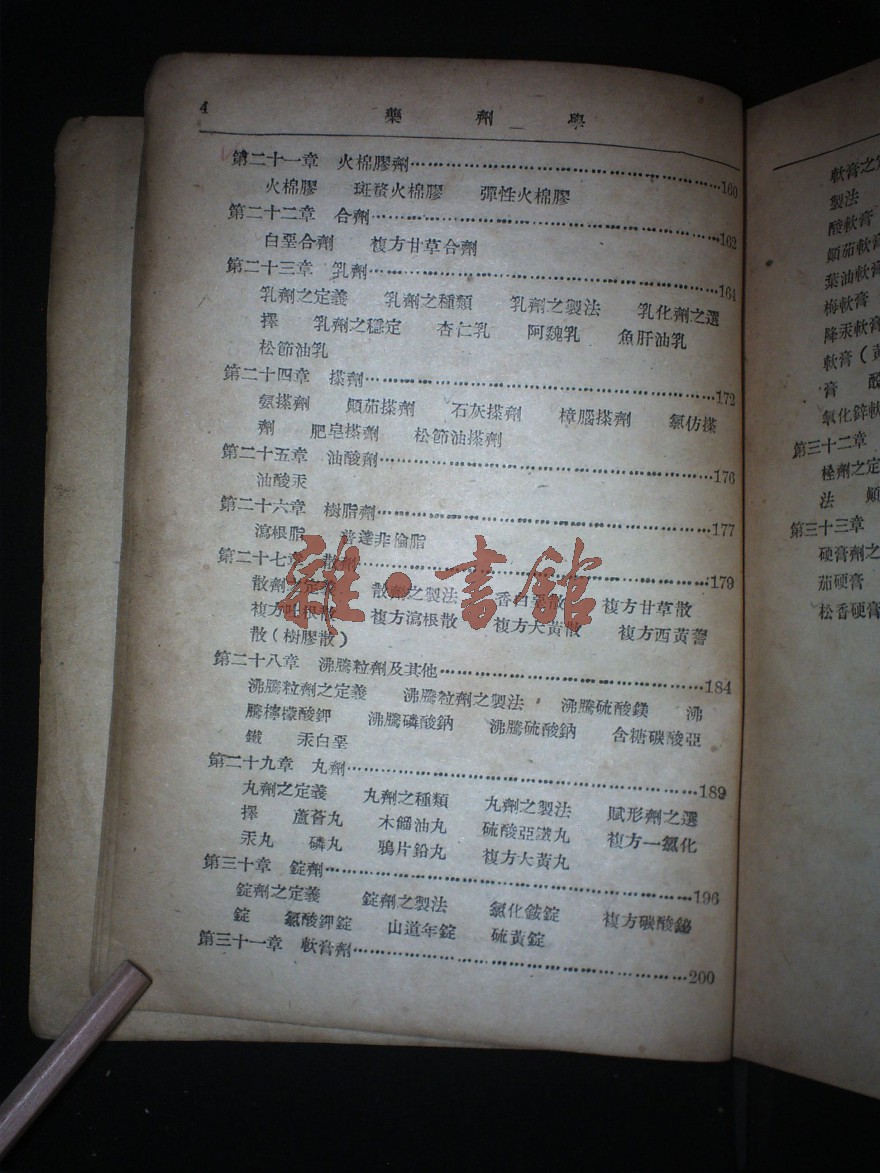 4
藥劑學
第二十一章 火棉膠劑……160
火棉膠 斑蝥火棉膠 彈性火棉膠
第二十二章 合劑……162
白堊合劑 複方甘草合劑
第二十三章 乳劑……164
乳劑之定義 乳劑之種類 乳劑之製法 乳化劑之選
擇 乳劑之穩定 杏仁乳 阿魏乳 魚肝油乳
松節油乳
第二十四章 搽劑……172
氨搽劑 顛茄搽劑 石灰搽劑 樟腦搽劑 氯仿搽
劑 肥皂搽劑 松節油搽劑
第二十五章 油酸劑……176
油酸汞
第二十六章 樹脂劑……177
瀉根脂 普達非倫脂
第二十七章 散劑……179
散劑之定義 散劑之製法 香白堊散 複方甘草散
複方吐根散 複方瀉根散 複方大黃散 複方西黃蓍
散(樹膠散)
第二十八章 沸騰粒劑及其他……184
沸騰粒劑之定義 沸騰粒劑之製法 沸騰硫酸鎂 沸
騰檸檬酸鉀 沸騰磷酸鈉 沸騰硫酸鈉 含糖碳酸亞
鐵 汞白堊
第二十九章 丸劑……189
丸劑之定義 丸劑之種類 丸劑之製法 賦形劑之選
擇 蘆薈丸 木餾油丸 硫酸亞鐵丸 複方一氯化
汞丸 磷丸 鴉片鉛丸 複方大黃丸
第三十章 錠劑……196
錠劑之定義 錠劑之製法 氯化銨錠 複方碳酸鉍
錠 氯酸鉀錠 山道年錠 硫黃錠
第三十一章 軟膏劑……200
軟膏之
製法
酸軟膏
顛茄軟膏
葉油軟膏
梅軟膏
降汞軟膏
軟膏(
膏
氧化鋅軟
第三十二章
栓劑之定
法 顛
第三十三章
硬膏劑之
茄硬膏
松香硬膏
雜·書館